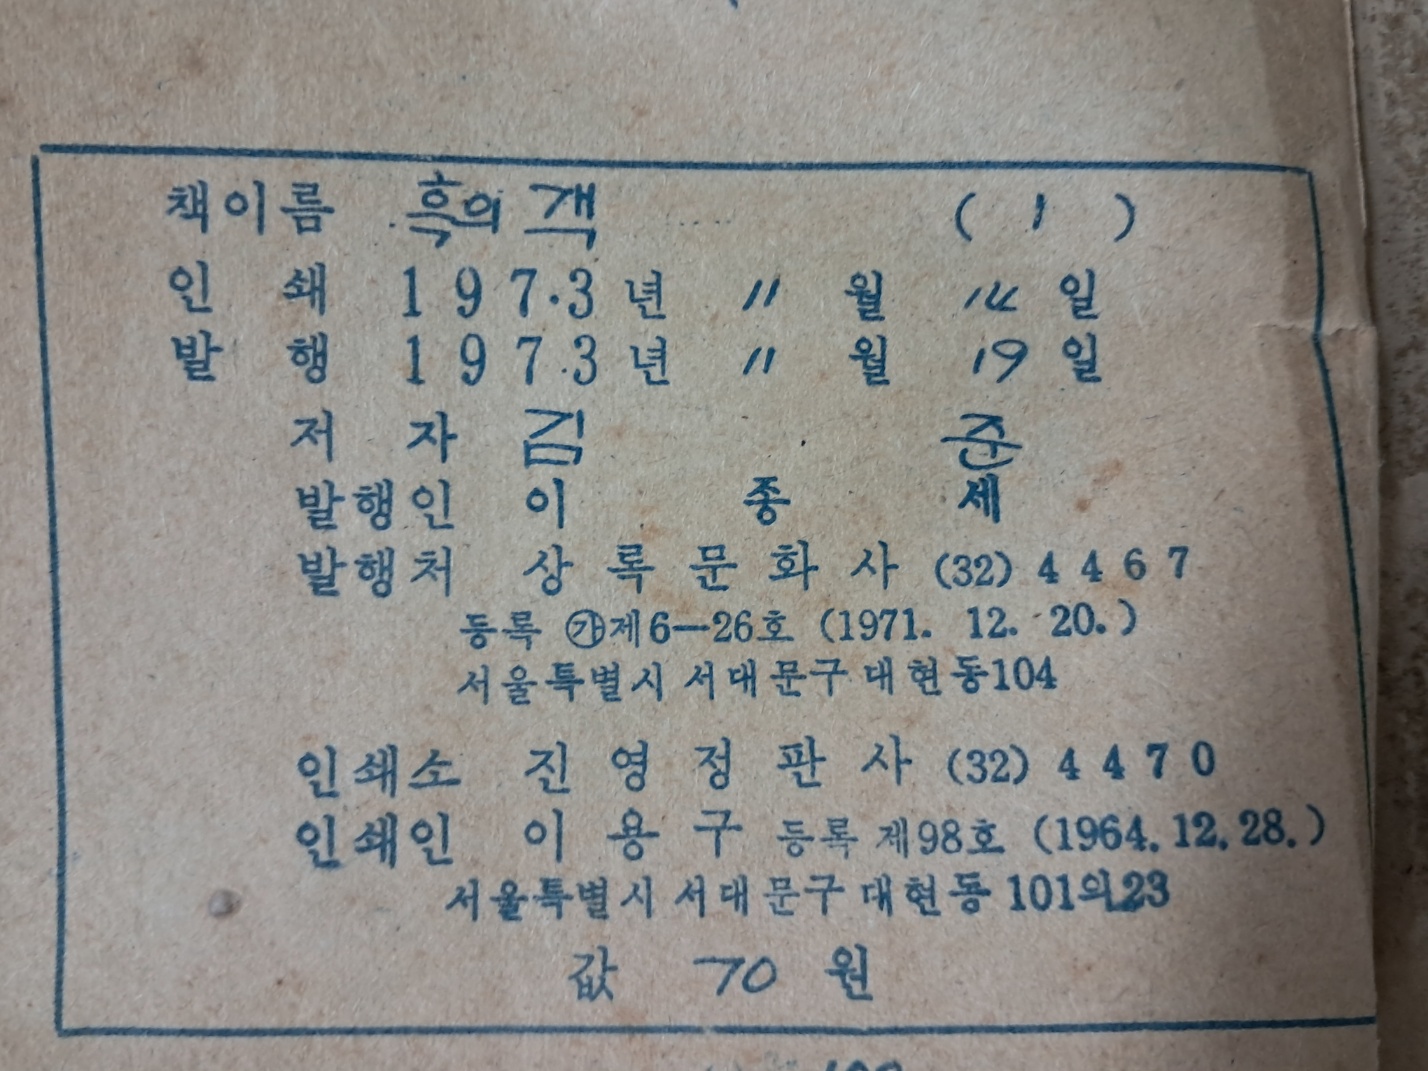 책이름 흑의 객 ( 1 )
인 쇄 197.3년 11 월 14 일
발 행 197.3년 11 월 19 일
저 자 김 준
발행인 이 종 세
발행처 상록문화사 (32) 4467
등록 ㉮제6—26호 (1971. 12. 20.)
서울특별시 서대문구 대현동104
인쇄소 진영정판사 (32) 4470
인쇄인 이용구 등록 제98호 (1964.12.28.)
서울특별시 서대문구 대현동 101의23
값 70 원